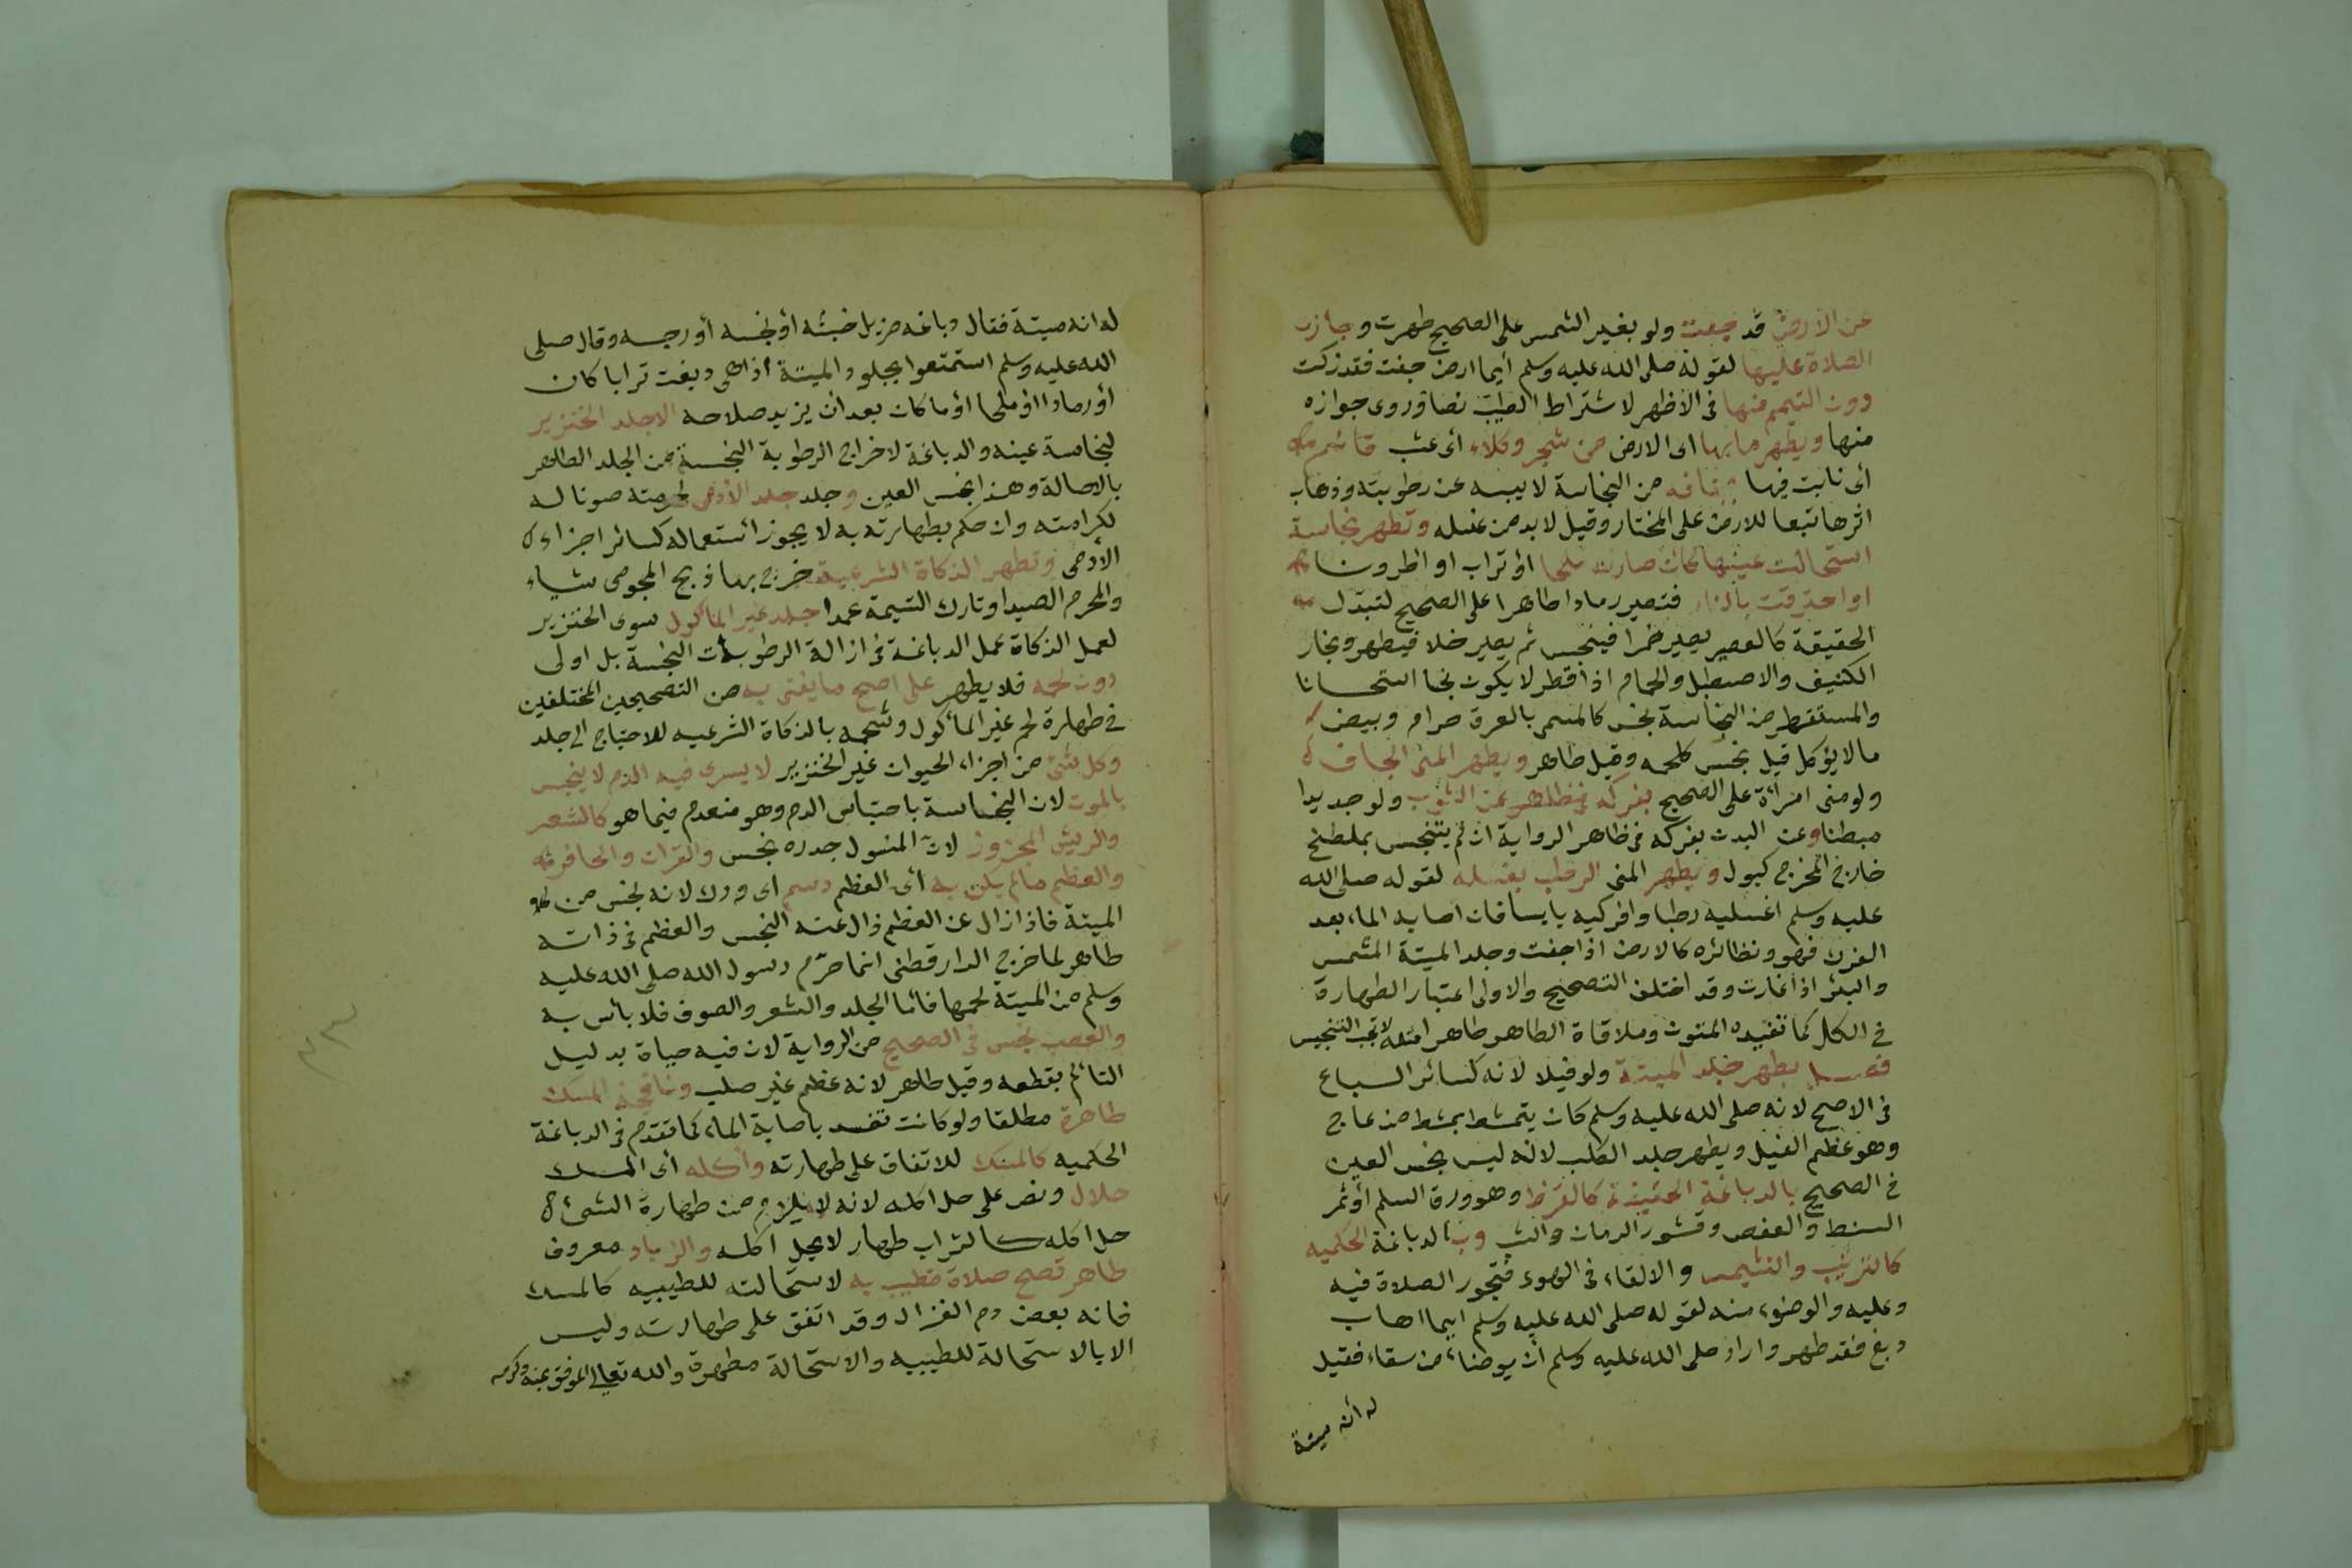 عن الأرض قد جفت ولو بغير الشمس على الصحيح طهرت وجازت
الصلاة عليها لقوله صلى الله عليه وسلم أيما ارض جفت فقد زكت
دون التيمم منها في الاظهر لاشتراط الطيب نصا وروى جوازه
منها ويطهر ما بها اى الارض من شجر وكلاء أى عشب قائم
أى نابت فيها من النجاسة لا يبسه عن رطوبته وذهاب
اثرها تبعا للارض على المختار وقيل لا بد من غسله وتطهر نجاسة
استحالت عينها كان صارت ملحا اؤ تراب او اطرونا
او احترقت بالنار فتصير رمادا طاهرا على الصحيح لتبدل
الحقيقة كالعصير يصير خمرا فينجس ثم يصير خلا فيطهر وبخار
الكنيف والاصطبل والحمام اذا قطر لا يكون نجا استحسانا
والمستقطر من النجاسة نجس كالمسمى بالعرق حرام وبيض
ما لا يؤكل قيل نجس كلحمه وقيل طاهر ويطهر المنى الجاف
ولو منى امرأة على الصحيح بفركه عن الثوب ولو جديدا
مبطنا وعن البدن بفركه في ظاهر الرواية ان لم يتنجس بملطخ
خارج المخرج كبول ويطهر المنى الرطب بغسله لقوله صلى الله
عليه وسلم اغسليه رطبا وافركيه يابسا فان اصابه الماء بعد
الفرك فهو ونظائره كالارض اذا جفت وجلد الميتة المشمس
والبئر اذا غارت وقد اختلف التصحيح والاولى اعتبار الطهارة
في الكل كما تفيده المتون وملاقاة الطاهر طاهر امثله لا تجب التنجيس
فصل يطهر جلد الميتة ولو فيلا لانه كسائر السباع
في الاصح لانه صلى الله عليه وسلم كان يتمشط بمشط من عاج
وهو عظم الفيل ويطهر جلد الكلب لانه ليس نجس العين
في الصحيح بالدباغة الحقيقية كالقرظ وهو ورق السلم أو ثمر
السنط والعفص وقشور الرمان والشب وبالدباغة الحكميه
كالتتريب والتشميس والالقاء في الهوى فتجوز الصلاة فيه
وعليه والوضوء منه لقوله صلى الله عليه وسلم ايما اهاب
دبغ فقد طهر واراد صلى الله عليه وسلم أن يوضاء من سقاء فقيل
له أنه ميتة
له انه ميتة فقال دباغه مزيل خبثه أؤ نجسه أو رجسه وقال صلى
الله عليه وسلم استمتعوا بجلود الميتة اذا هى دبغت ترابا كان
أو رمادا اؤ ملحا اؤ ما كان بعد أن يزيد صلاحه الا جلد الخنزير
لنجاسة عينه والدباغة لاخراج الرطوبة النجسة من الجلد الطاهر
بالاصالة وهذا نجس العين وجلد جلد الأدمى لحرمته صونا له
لكرامته وان حكم بطهارته به لا يجوز استعماله كسائر اجزاء
الأدمى وتطهر الذكاة الشرعية خرج بها ذبح المجوسى شياء
والمحرم الصيد او تارك التسيمة عمدا جلد غير المأكول سوى الخنزير
لعمل الذكاة عمل الدباغة في ازالة الرطوبات النجسة بل اولى
دون لحمه فلا يطهر على اصح ما يفتى به من التصحيحين المختلفين
في طهارة لحم غير المأكول وشحمه بالذكاة الشرعيه للاحتياج الى جلد
وكل شئ من اجزاء الحيوان غير الخنزير لا يسرى فيه الدم لا ينجس
بالموت لان النجاسة باحتباس الدم وهو منعدم فيما هو كالشعر
والريش المجزوز لان المنسول جدره نجس والقران والحافر
والعظم ما لم يكن به أى العظم دسم اى ودك لانه نجس من
الميتة فاذا زال عن العظم زال عنه النجس والعظم في ذاته
طاهر لما خرج الدارقطنى انما حرم رسول الله صلى الله عليه
وسلم من الميتة لحمها فأما الجلد والشعر والصوف فلا بأس به
والعصب نجس في الصحيح من الرواية لان فيه حياة بدليل
التألم بقطعه وقيل طاهر لانه عظم غير صلب ونافجة المسك
طاهرة مطلقا ولو كانت تفسد باصابة الماء كما تقدم في الدباغة
الحكميه كالمسك للاتفاق على طهارته وأكله أى المسك
حلال ونص على حل اكله لانه لا يلزم من طهارة الشئ
حل اكله كالتراب طهار لا يحل اكله والزباد معروف
طاهر تصح صلاة مطيب به لاستحالته للطيبيه كالمسك
فانه بعض دم الغزال وقد اتفق على طهارته وليس
الا بالاستحالة للطيبيه والاستحالة مطهرة والله تعالى الموفق بمنه وكرمه